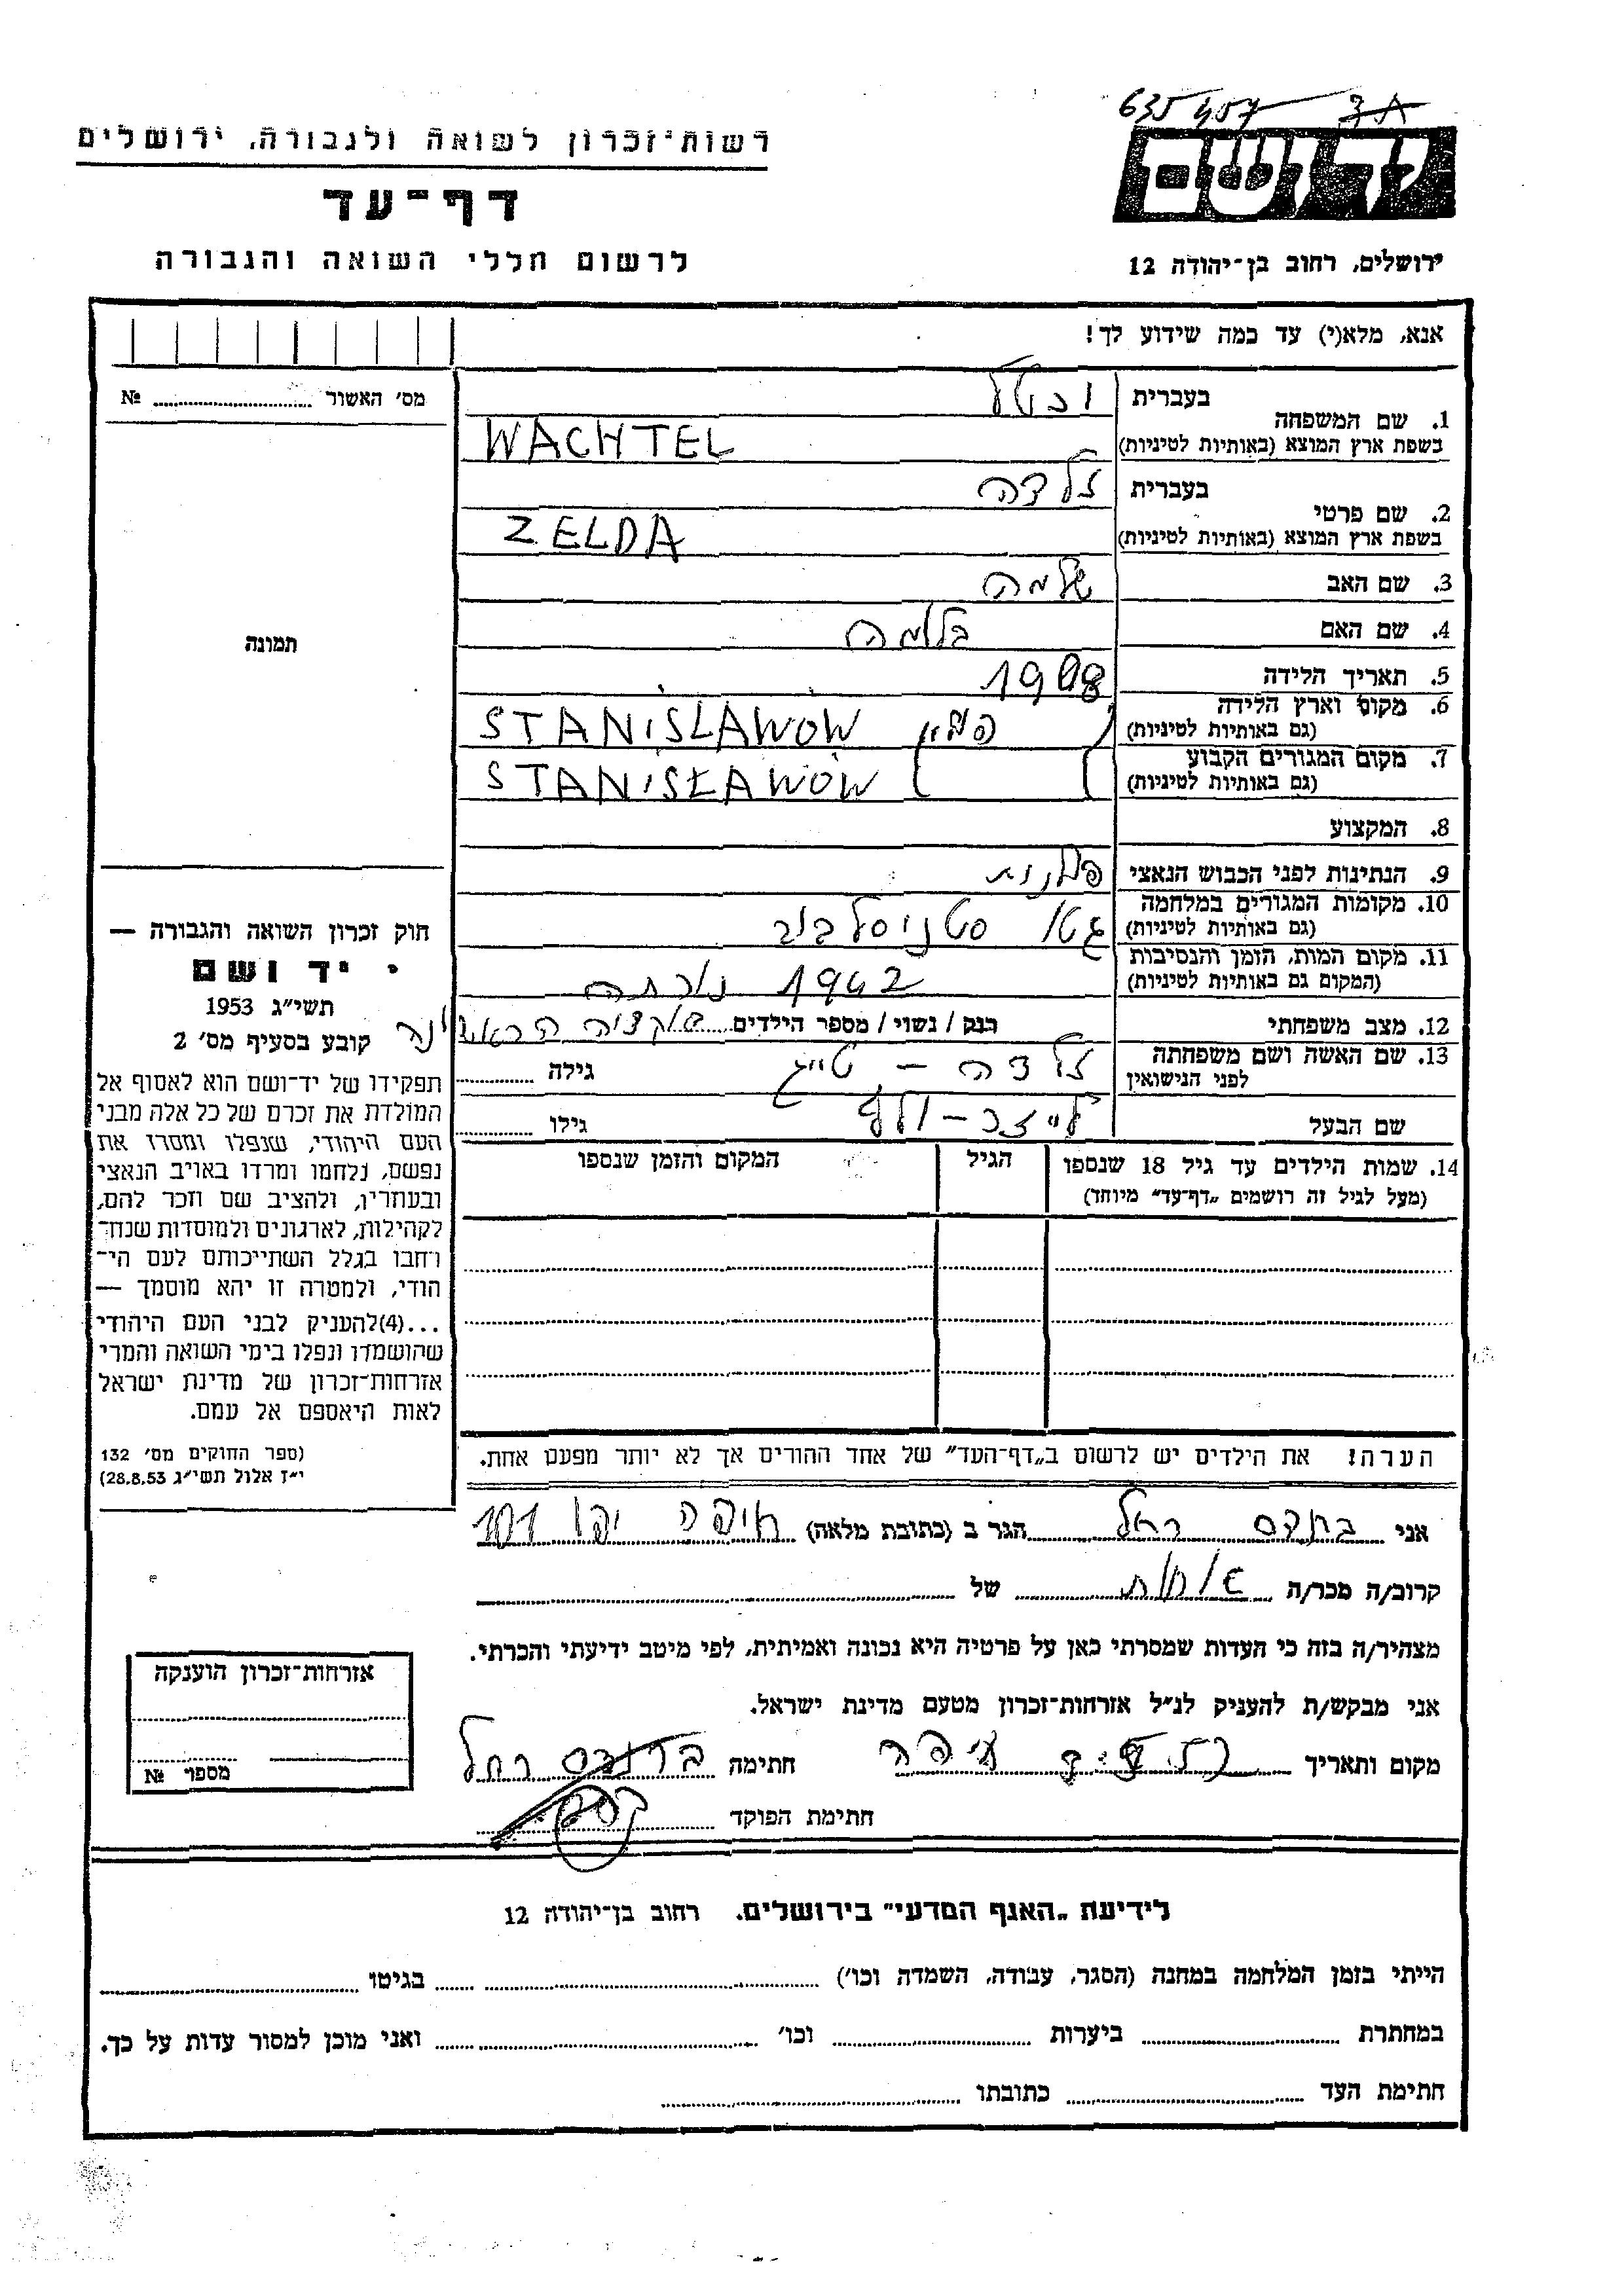 635457
רשות־זכרון לשואה ולגבורה, ירושלים
יד ושם
דף־עד
לרשום חללי השואה והגבורה
ירושלים, רחוב בן־יהודה 12
אנא, מלא(י) עד כמה שידוע לך!
מס' האשור № 
1. שם המשפחה בעברית וכטל
בשפת ארץ המוצא (באותיות לטיניות) WACHTEL
2. שם פרטי בעברית זלדה
בשפת ארץ המוצא (באותיות לטיניות) ZELDA
3. שם האב שלמה
4. שם האם בלומה
תמונה
5. תאריך הלידה 1908
6. מקום וארץ הלידה (גם באותיות לטיניות) פולין STANISŁAWOW
7. מקום המגורים הקבוע (גם באותיות לטיניות) STANISŁAWOW
8. המקצוע
9. הנתינות לפני הכבוש הנאצי פולנית
10. מקומות המגורים במלחמה (גם באותיות לטיניות) גטו סטניסלבוב
11. מקום המות, הזמן והנסיבות (המקום גם באותיות לטיניות) 1942 נורתה
12. מצב משפחתי רנק / נשוי / מספר הילדים באקציה הראשונה
13. שם האשה ושם משפחתה לפני הנישואין זלדה – טייג גילה
שם הבעל לייזר - וולף גילו
14. שמות הילדים עד גיל 18 שנספו הגיל המקום והזמן שנספו
(מעל לגיל זה רושמים „דף־עד" מיוחד)
חוק זכרון השואה והגבורה —
יד ושם
תשי״ג 1953
קובע בסעיף מס' 2
תפקידו של יד־ושם הוא לאסוף אל
המולדת את זכרם של כל אלה מבני
העם היהודי, שנפלו ומסרו את
נפשם, נלחמו ומרדו באויב הנאצי
ובעוזריו, ולהציב שם וזכר להם,
לקהילות, לארגונים ולמוסדות שנח־
רבו בגלל השתייכותם לעם הי־
הודי, ולמטרה זו יהא מוסמך —
...(4)להעניק לבני העם היהודי
שהושמדו ונפלו בימי השואה והמרי
אזרחות־זכרון של מדינת ישראל
לאות היאספם אל עמם.
(ספר החוקים מס' 132
י״ז אלול תשי״ג 28.8.53)
הערה! את הילדים יש לרשום ב„דף־העד" של אחד ההורים אך לא יותר מפעם אחת.
אני ברנדס רחל הגר ב (כתובת מלאה) חיפה יפו 101
קרוב/ה מכר/ה אחות של
מצהיר/ה בזה כי העדות שמסרתי כאן על פרטיה היא נכונה ואמיתית, לפי מיטב ידיעתי והכרתי.
אני מבקש/ת להעניק לנ״ל אזרחות־זכרון מטעם מדינת ישראל.
מקום ותאריך חיפה חתימה ברנדס רחל
חתימת הפוקד
אזרחות־זכרון הוענקה
מספר №
לידיעת „האגף המדעי" בירושלים. רחוב בן־יהודה 12
הייתי בזמן המלחמה במחנה (הסגר, עבודה, השמדה וכו') בגיטו
במחתרת ביערות וכו' ואני מוכן למסור עדות על כך.
חתימת העד כתובתו